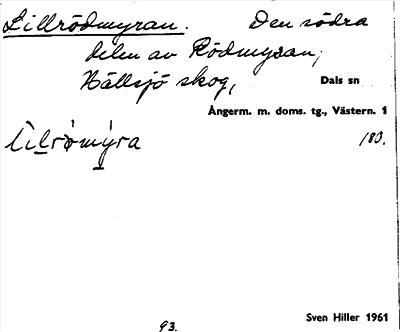 Lillrödmyran. Den södra
delen av Rödmyran,
Hällsjö skog, Dals sn
Ångerm. m. doms. tg., Västern. 1
183.
93.
Sven Hiller 1961